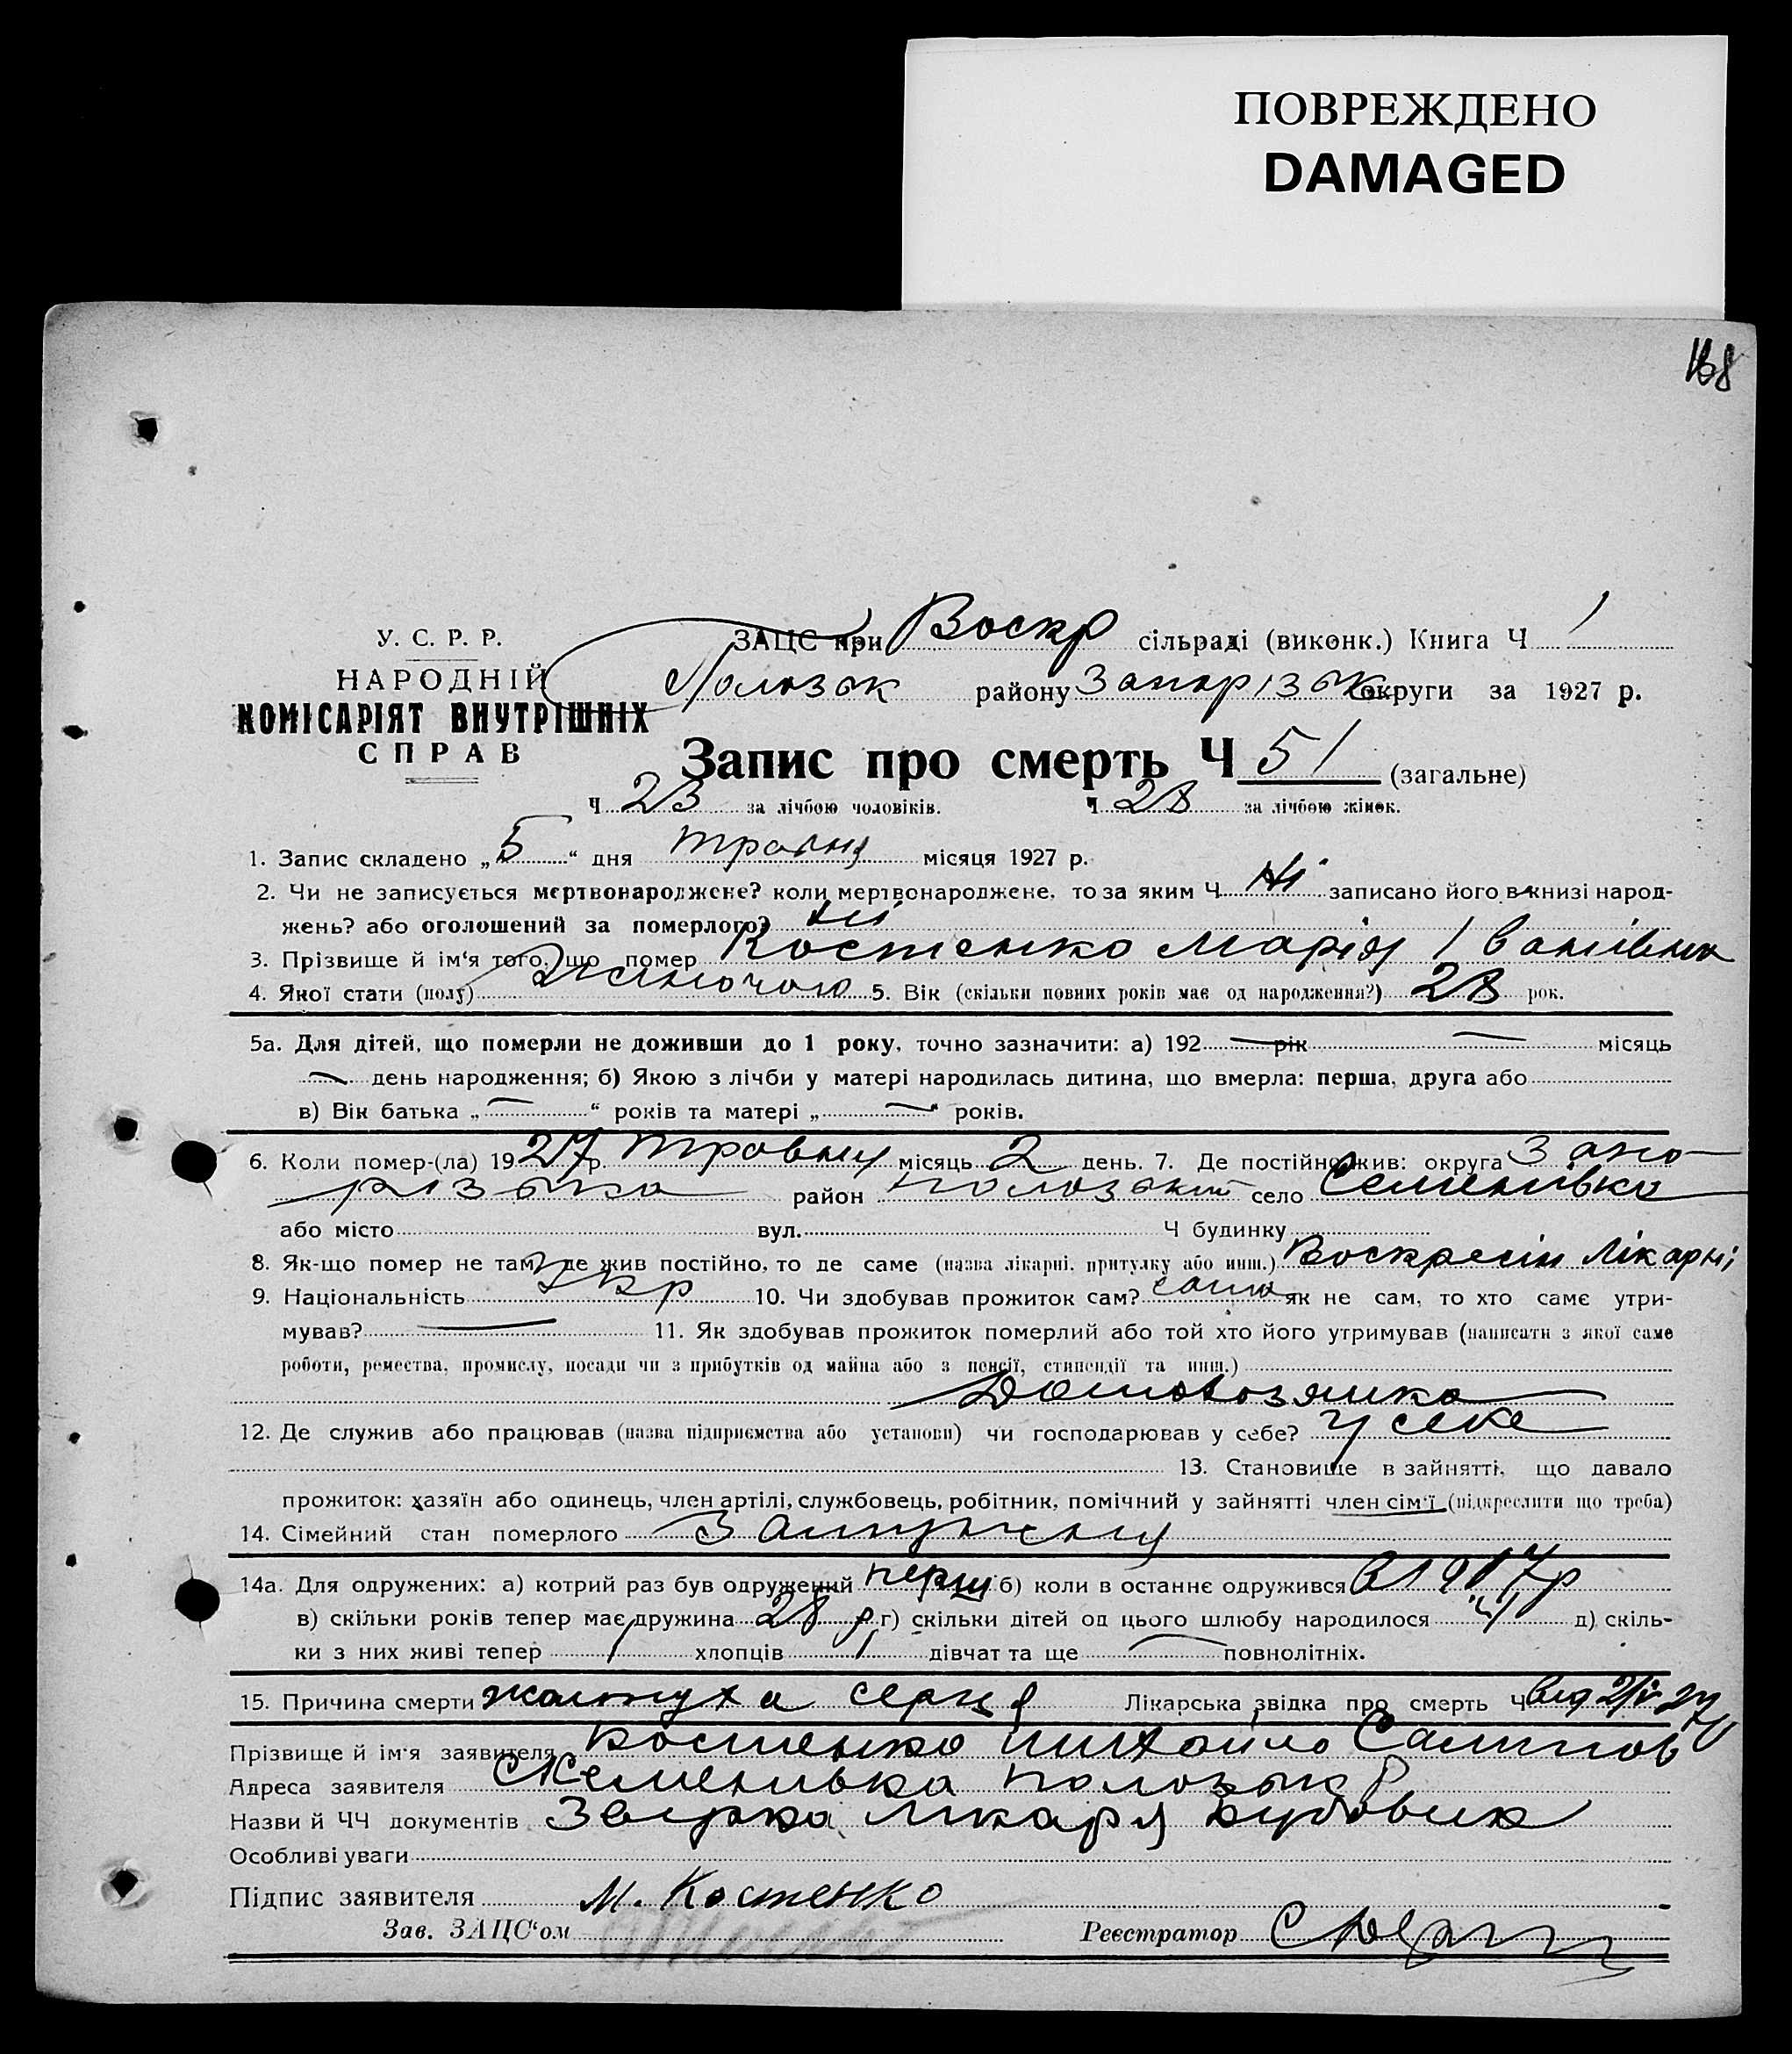 ПОВРЕЖДЕНО
DAMAGED
168
У. С. Р. Р.
НАРОДНІЙ
КОМІСАРІЯТ ВНУТРІШНІХ
СПРАВ
ЗАЦС при Воскр сільраді (виконк.) Книга Ч 1
Полозьк району Запорізьк округи за 1927 р.
Запис про смерть Ч 51 (загальне)
Ч 23 за лічбою чоловіків. Ч 28 за лічбою жінок.
1. Запис складено „5“ дня травня місяця 1927 р.
2. Чи не записується мертвонароджене? коли мертвонароджене, то за яким Ч Ні записано його в книзі народ-
жень? або оголошений за померлого? ні
3. Прізвище й ім'я того, що помер Костенко Марія Іванівна
4. Якої стати (полу) Жіночого 5. Вік (скільки повних років має од народження?) 28 рок.
5а. Для дітей, що померли не доживши до 1 року, точно зазначити: а) 192 — рік — місяць
— день народження; б) Якою з лічби у матері народилась дитина, що вмерла: перша, друга або
в) Вік батька „—“ років та матері „—“ років.
6. Коли помер-(ла) 1927 р. травня місяць 2 день. 7. Де постійно жив: округа Запо
різька район Полозький село Семенівка
або місто вул. Ч будинку
8. Як-що помер не там, де жив постійно, то де саме (назва лікарні, притулку або инш.) Воскресін Лікарні
9. Національність Укр 10. Чи здобував прожиток сам? сама як не сам, то хто саме утри-
мував? — 11. Як здобував прожиток померлий або той хто його утримував (написати з якої саме
роботи, ремества, промислу, посади чи з прибутків од майна або з пенсії, стипендії та инш.)
Домохозяйка
12. Де служив або працював (назва підприємства або установи) чи господарював у себе? у себе
13. Становище в зайнятті, що давало
прожиток: хазяїн або одинець, член артілі, службовець, робітник, помічний у зайнятті член сім'ї (підкреслити що треба)
14. Сімейний стан померлого Замужня
14а. Для одружених: а) котрий раз був одружений перш б) коли в останнє одружився в 1917 р
в) скільки років тепер має дружина 28 р г) скільки дітей од цього шлюбу народилося 4 д) скіль-
ки з них живі тепер 1 хлопців 1 дівчат та ще — повнолітніх.
15. Причина смерти серця Лікарська звідка про смерть Ч від 2/V 27
Прізвище й ім'я заявителя Костенко Михайло
Адреса заявителя Семенивка Полозьк р
Назви й ЧЧ документів лікаря
Особливі уваги
Підпис заявителя М. Костенко
Зав. ЗАЦС'ом
Реєстратор